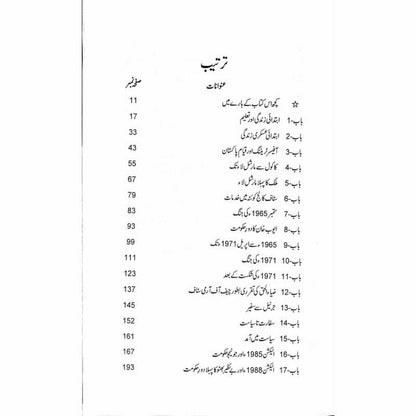 ترتیب
عنوانات صفحہ نمبر
☆ کچھ اس کتاب کے بارے میں 11
باب-1 ابتدائی زندگی اور تعلیم 17
باب-2 ابتدائی عسکری زندگی 33
باب-3 آفیسر ٹریننگ اور قیامِ پاکستان 43
باب-4 کاکول سے مارشل لاء تک 55
باب-5 ملک کا پہلا مارشل لاء 67
باب-6 سٹاف کالج کوئٹہ میں خدمات 79
باب-7 ستمبر 1965ء کی جنگ 83
باب-8 ایوب خان کا دورِ حکومت 93
باب-9 1965ء سے اپریل 1971ء تک 99
باب-10 1971ء کی جنگ 111
باب-11 1971ء کی شکست کے بعد 123
باب-12 ضیاء الحق کی تقرری بطور چیف آف آرمی سٹاف 137
باب-13 جرنیل سے سفیر 145
باب-14 سفارت تا سیاست 152
باب-15 سیاست میں آمد 161
باب-16 الیکشن 1985ء اور جونیجو حکومت 167
باب-17 الیکشن 1988ء اور بے نظیر بھٹو کا پہلا دورِ حکومت 193